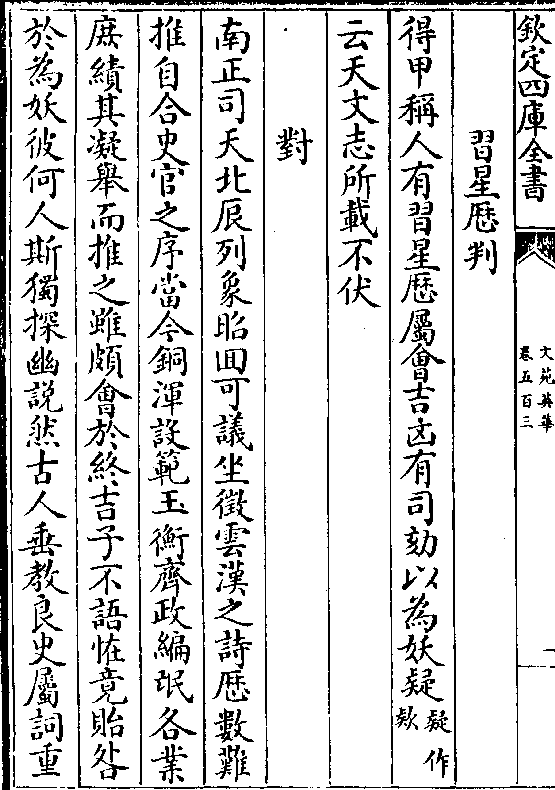 欽定四庫全書
文苑英華
卷五百三
一
習星厯判
得甲稱人有習星厯屬會吉㐫有司劾以為妖疑疑作欵
云天文志所載不伏
對
南正司天北辰列象昭囬可議坐徵雲漢之詩厯數難
推自合史官之序當今銅渾設範玉衡齊政編氓各業
庶績其凝舉而推之雖頗會於終吉子不語恠竟貽咎
於為妖彼何人斯獨探幽説然古人垂教良史屬詞重